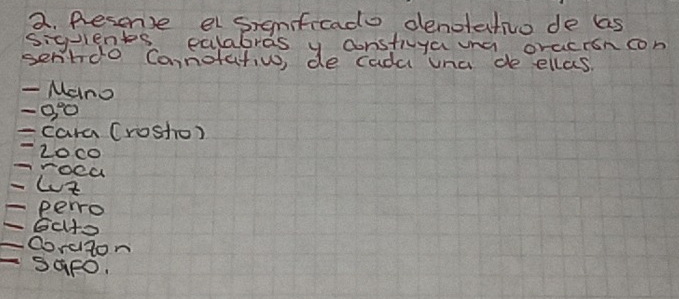 2. Presente el significado denotativo de las
siguientes palabras y construya una oración con
sentido Connotativo, de cada una de ellas.
- Mano
- ojo
- cara (rostro)
- Loco
- roca
- Luz
- perro
- Gato
- Corazon
- Sapo.